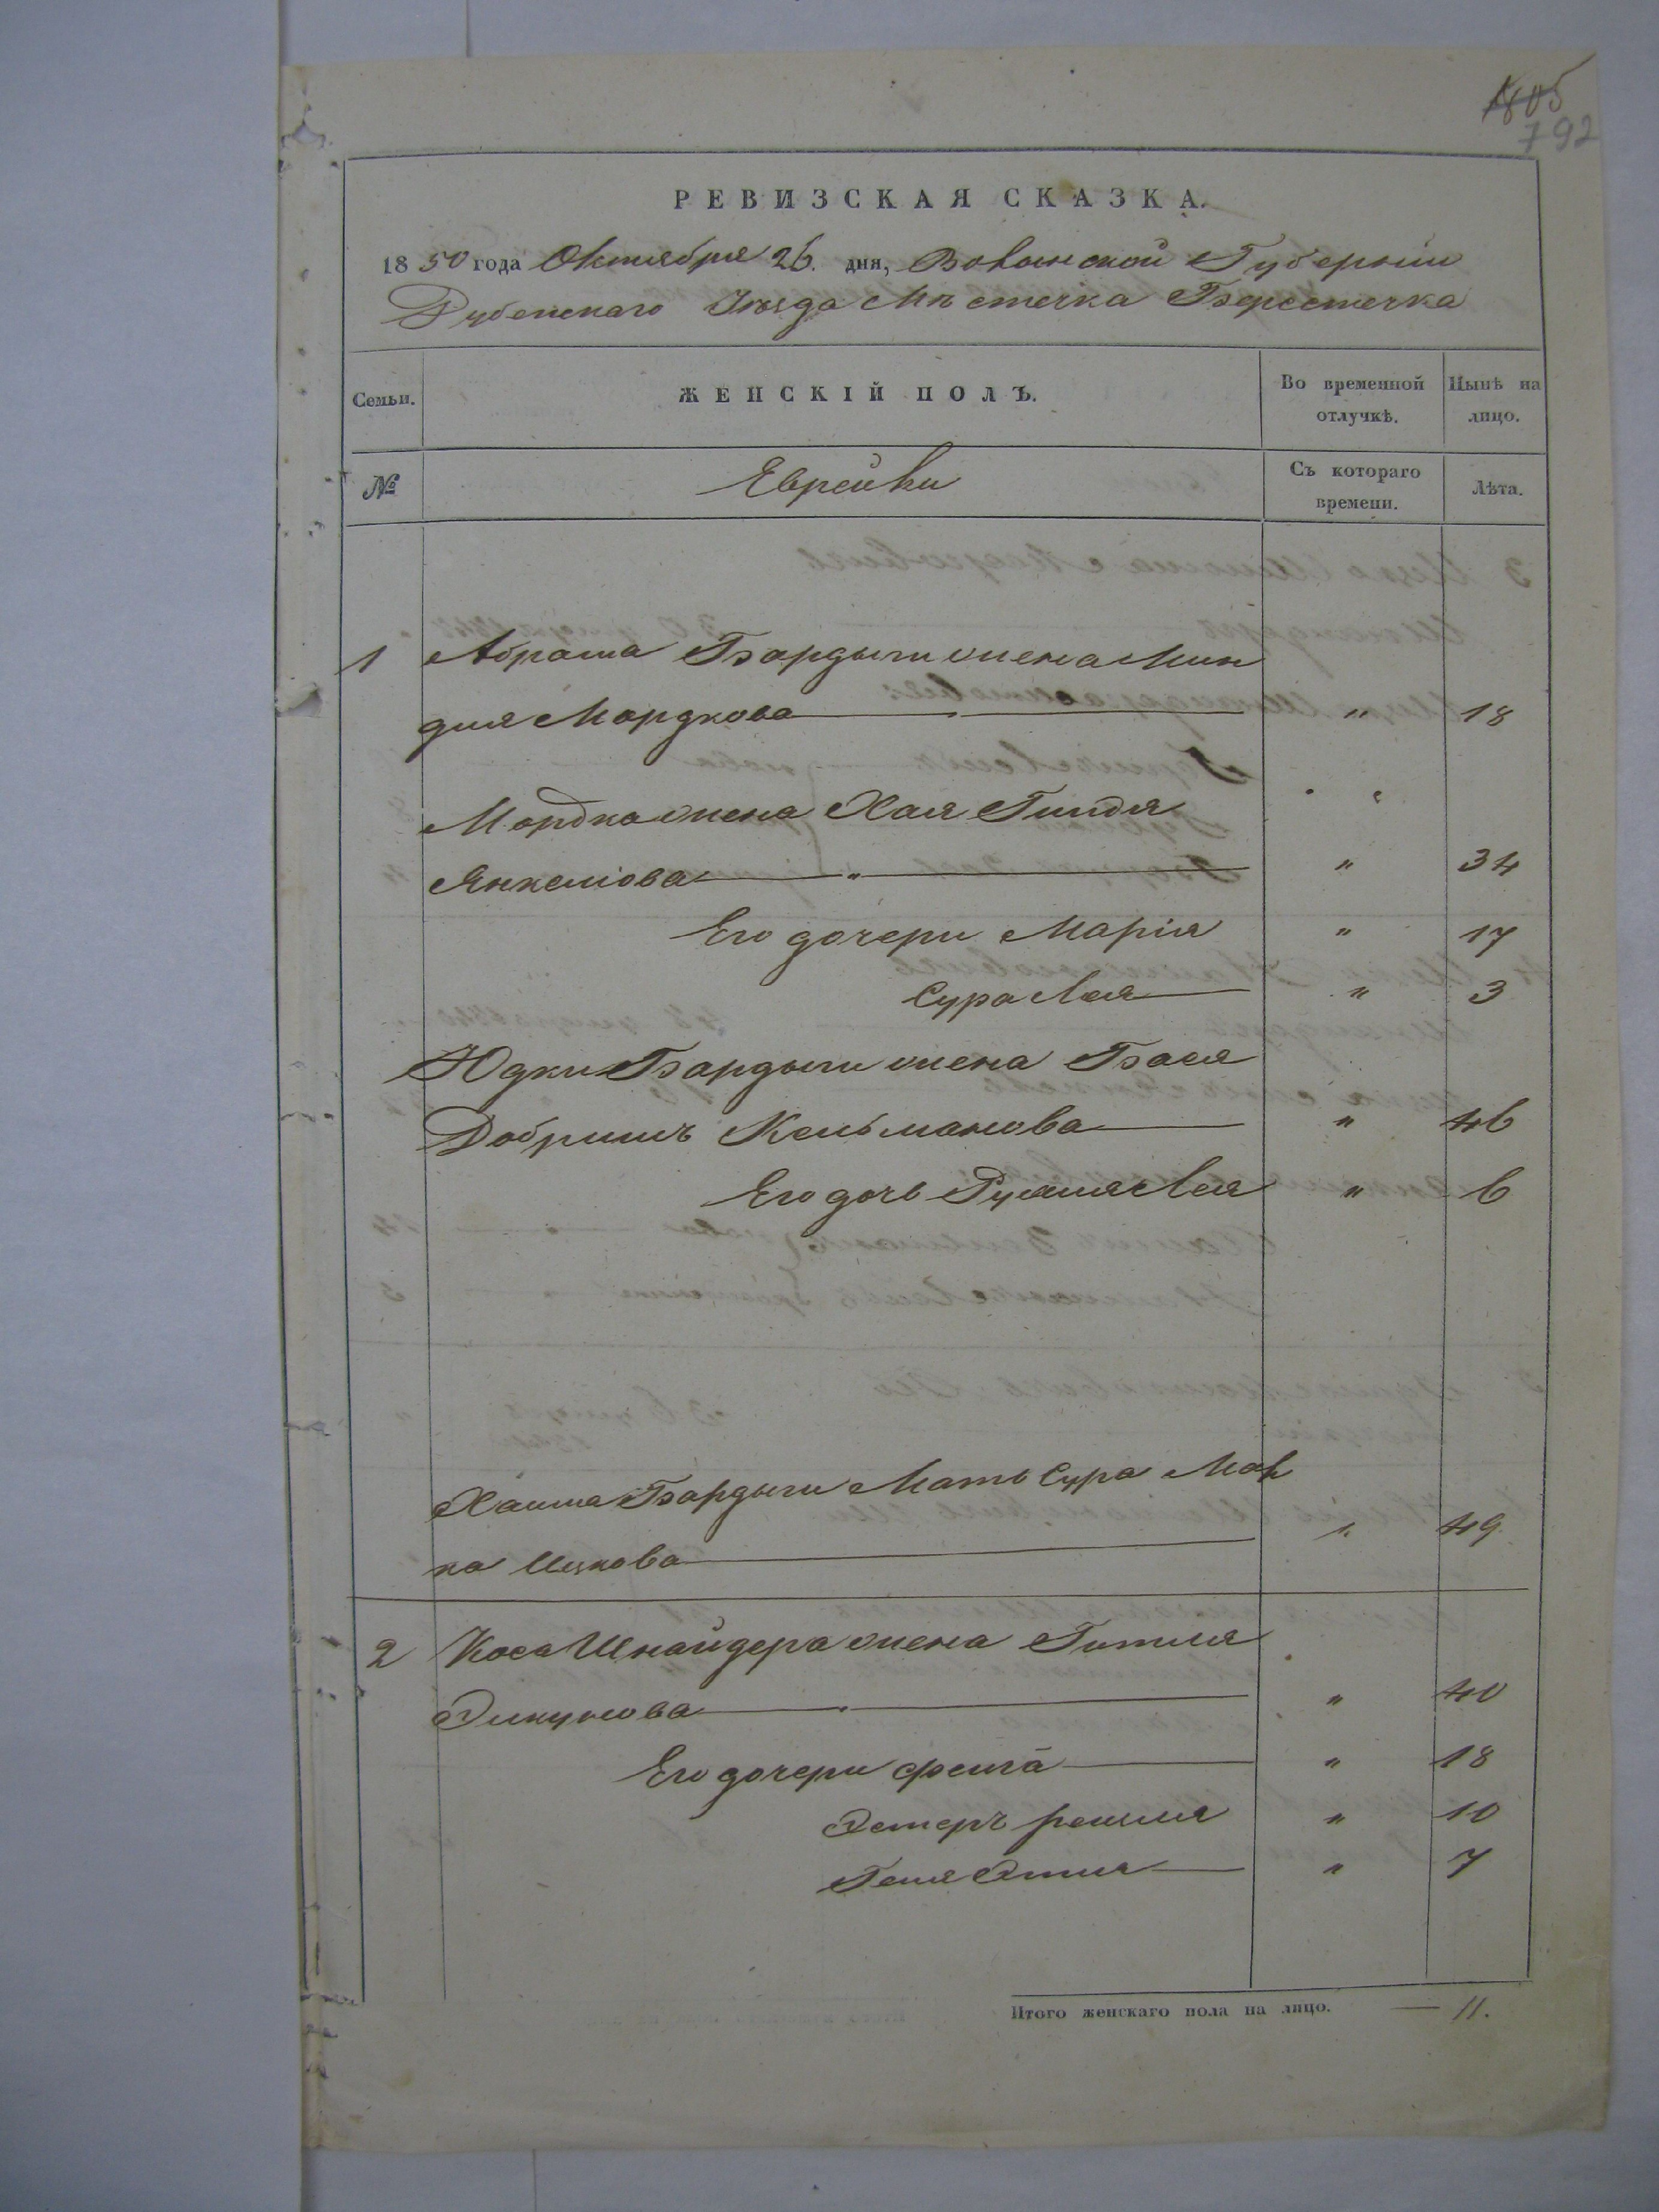 1805
792
РЕВИЗСКАЯ СКАЗКА.
1850 года Октября 26. дня, Волынской Губерніи
Дубенскаго Уѣзда Мѣстечка Берестечка
Семьи.
ЖЕНСКІЙ ПОЛЪ.
Во временной отлучкѣ.
Нынѣ на лицо.
№
Еврейки
Съ котораго времени.
Лѣта.
1 Абрама Бардыги жена Мин
для Мордкова — " 18
Мордка жена Хая Гитля
Янкеліова — " 34
Его дочери Марія " 17
Сура Лея — " 3
Юдки Бардыги жена Бася
Добришъ Кельманова — " 46
Его дочь Рухля Лея " 6
Хаима Бардыги Мать Сура Мал
ка Ицкова — " 49
2 Коса Шнайдера жена Гитля
Элкунова — " 40
Его дочери Фейга — " 18
Эстеръ Рейзля " 10
Геня Этля — " 7
Итого женскаго пола на лицо. — 11.